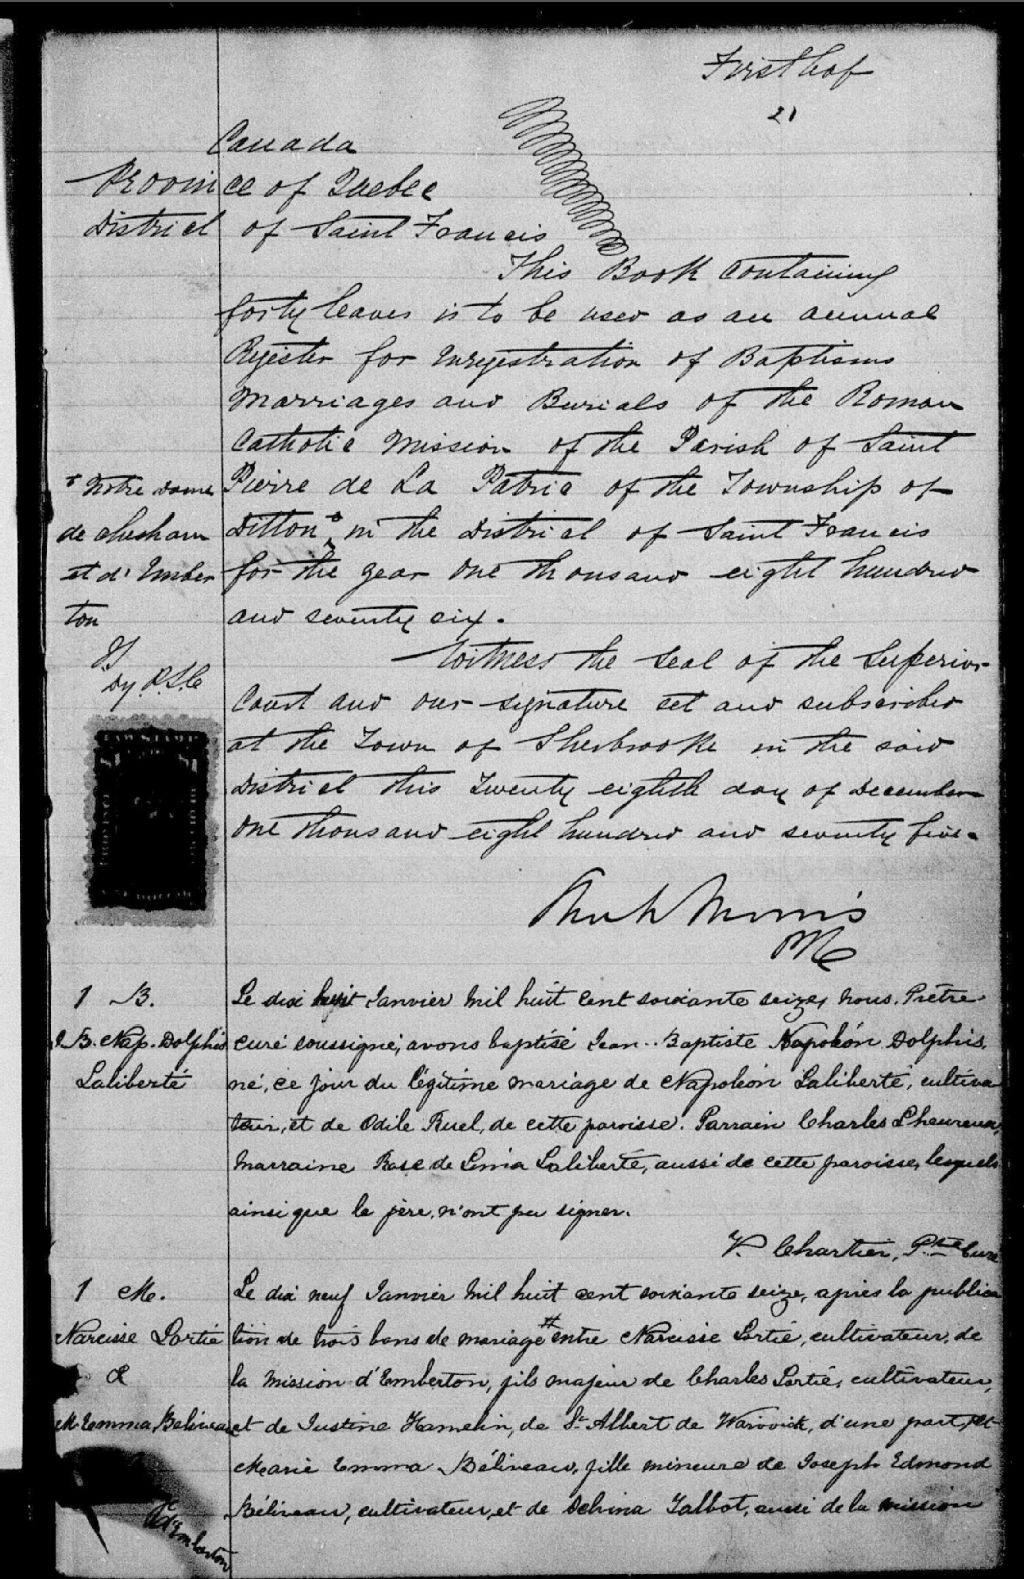 First
21
Canada
Province of Quebec
District of Saint Francis
This Book containing
forty leaves is to be used as an annual
Register for Enregistration of Baptisms
Marriages and Burials of the Roman
Catholic Mission of the Parish of Saint
Pierre de La Patrie of the Township of
Ditton in the District of Saint Francis
for the year one thousand eight hundred
and seventy six.
Notre Dame
de Chesham
et d'Ember
ton
Witness the seal of the Superior
Court and our signature set and subscribed
at the Town of Sherbrooke in the said
District this Twenty eighth day of December
one thousand eight hundred and seventy five.
Morris
1 B.
J. B. Nap. Dolphis
Laliberté
Le dix huit Janvier mil huit cent soixante seize, nous, Prêtre
curé soussigné, avons baptisé Jean-Baptiste Napoléon Dolphis,
né, ce jour du légitime mariage de Napoléon Laliberté, cultiva
teur, et de Odile Ruel, de cette paroisse. Parrain Charles Lheureux,
Marraine Rose de Lima Laliberté, aussi de cette paroisse, lesquels
ainsi que le père, n'ont pu signer.
V. Chartier, Ptre Curé
1 M.
Narcisse Portié
&
M Emma Béliveau
d'Emberton
Le dix neuf Janvier mil huit cent soixante seize, après la publica
tion de trois bans de mariage # entre Narcisse Portié, cultivateur, de
la mission d'Emberton, fils majeur de Charles Portié, cultivateur,
et de Justine Hamelin, de St Albert de Warwick, d'une part, et
Marie Emma Béliveau, fille mineure de Joseph Edmond
Béliveau, cultivateur, et de Delvina Talbot, aussi de la mission